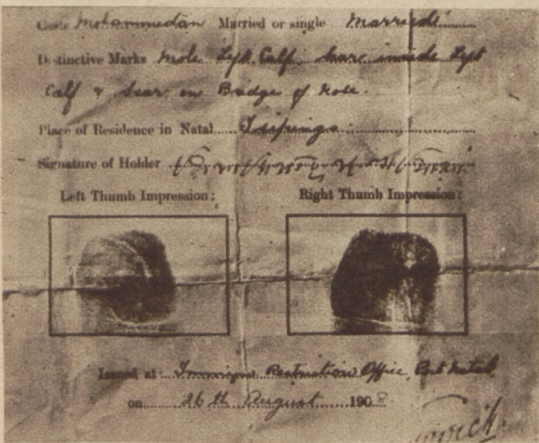 Caste Mohammedan Married or single Married
Distinctive Marks Mole Left Calf, Scar inside Left
Calf & Scar on Bridge of Nose.
Place of Residence in Natal Isipingo
Signature of Holder
Left Thumb Impression: Right Thumb Impression:
Issued at Immigrn Restriction Office, Port Natal
on 26th August 1908